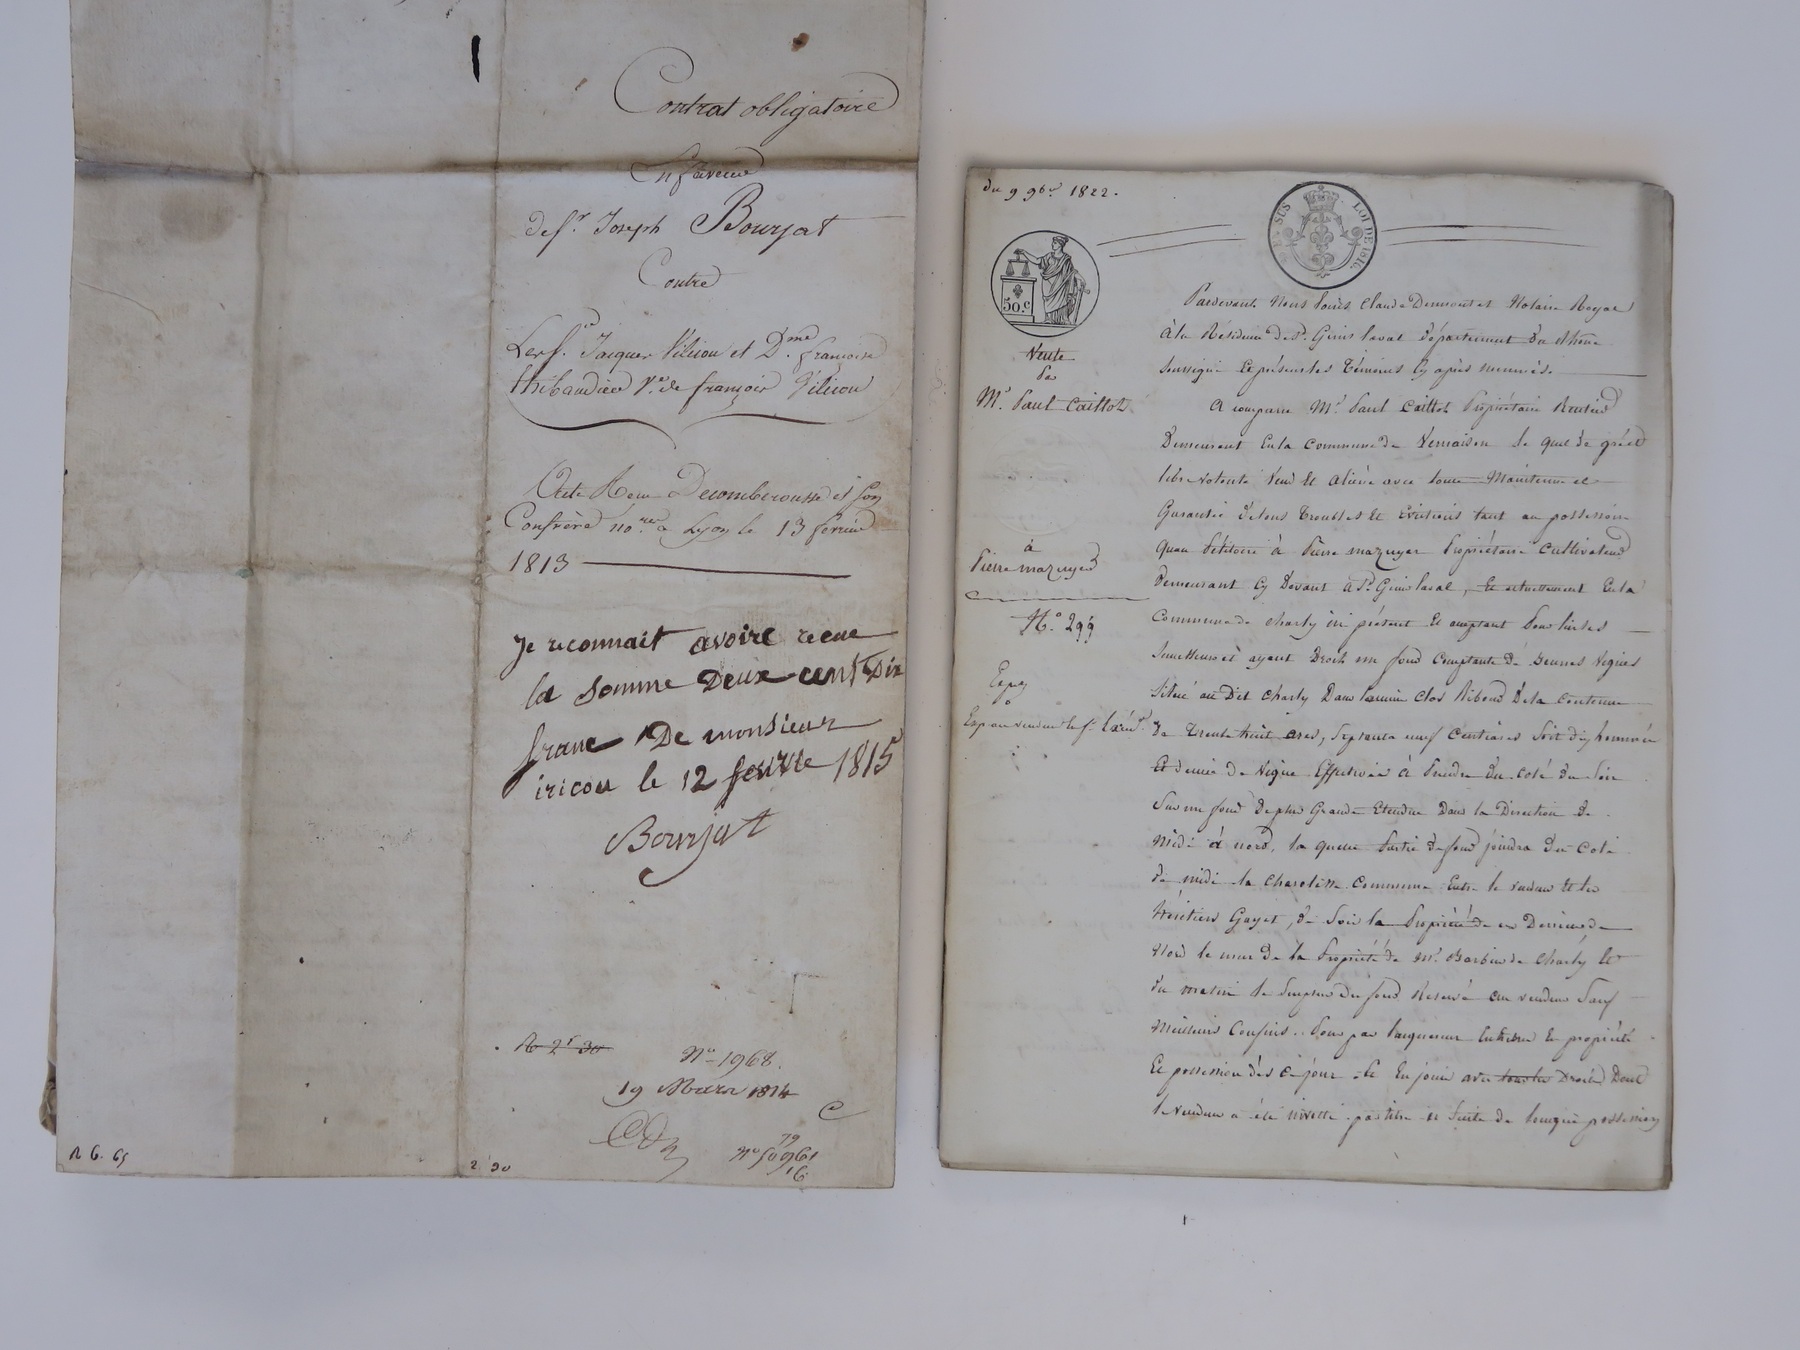 Contrat obligatoire
En faveur
de sr. Joseph Bourjat
Contre
Les sr. Jacques Vilicou et Dme. françoise
thibaudier Ve. de françois Vilicou
Acte Reçu Decomberousse et son
Confrère nores. a Lyon le 13 février
1813
je reconnait avoire recue
la somme Deux cent Dix
franc De monsieur
le 12 fevrie 1815
Bourjat
No 1968.
19 Mars 1814
R 6. 65
2. 30
du 9 9bre 1822.
SUS LOI DE 1816.
50.c
Vente
De
Mr. Paul Caillot
à
Pierre mazuyer
No. 299
Expon
Pardevant Nous Claude Notaire Royal
à la Résidence de St. Genis laval département du Rhône
soussigné et présents les témoins cy après nommés.
A comparu Mr. Paul Caillot Propriétaire Rentier
Demeurant en la Commune de Vernaison le quel de gré et
libre volonté Vend et aliène avec toute Maintenue et
Garantie de tous troubles et évictions tant au possessoire
quau Pétitoire à Pierre mazuyer Propriétaire Cultivateur
demeurant cy devant à St. Genis laval, et actuellement en la
Commune de charly ici présent et acceptant pour lui ses
et ayant Droit un fond Complanté de jeunes Vignes
Situé au Dit Charly Dans l'ancien Clos Ribond De la Contenue
De Trente huit ares, septante neuf Centiares Soit dix hommée
Et demie de Vigne Effective à Prendre Du coté du Soir
Sur un fond De plus Grande Etendue Dans la Direction de
Midi à nord, la quelle Partie de fond joindra Du Coté
de midi la Charolisse Commune Entre le vendeur et les
héritiers Gayet, de Soir la Propriété de
Nord le mur De la Propriété de Mr. Barbier de Charly et
du matin le Surplus du fond Réservé au vendeur Sauf
Meilleurs Confins. Pour par l'acquereur entrer en propriété
Et possession dès ce jour et En jouir avec tous les Droits Dont
le vendeur a été investi par titre et suite de longue possession